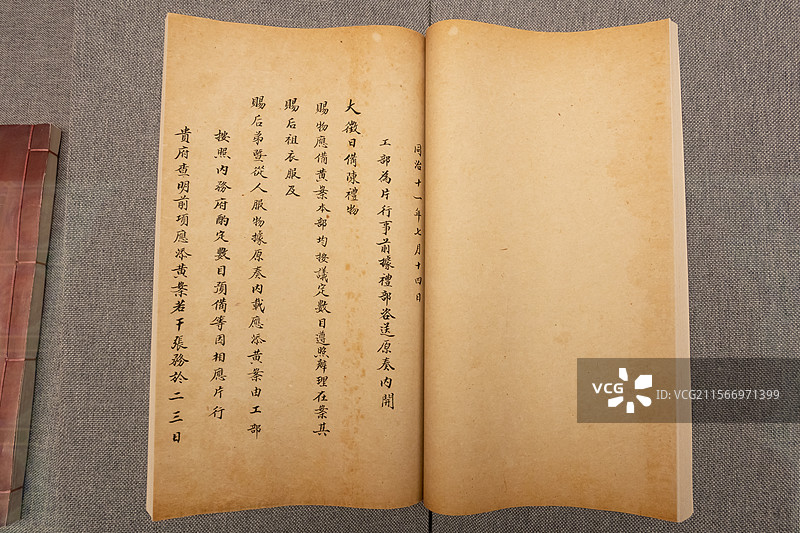 同治十一年七月十四日
工部為片行事前據禮部咨送原奏內開
大徵日備陳禮物
賜物應備黃案本部均按議定數目遵照辦理在案其
賜后祖衣服及
賜后弟暨從人服物據原奏內載應添黃案由工部
按照內務府酌定數目預備等因相應片行
貴府查明前項應添黃案若干張務於二三日
VCG
VCG.COM
VCG211566971399